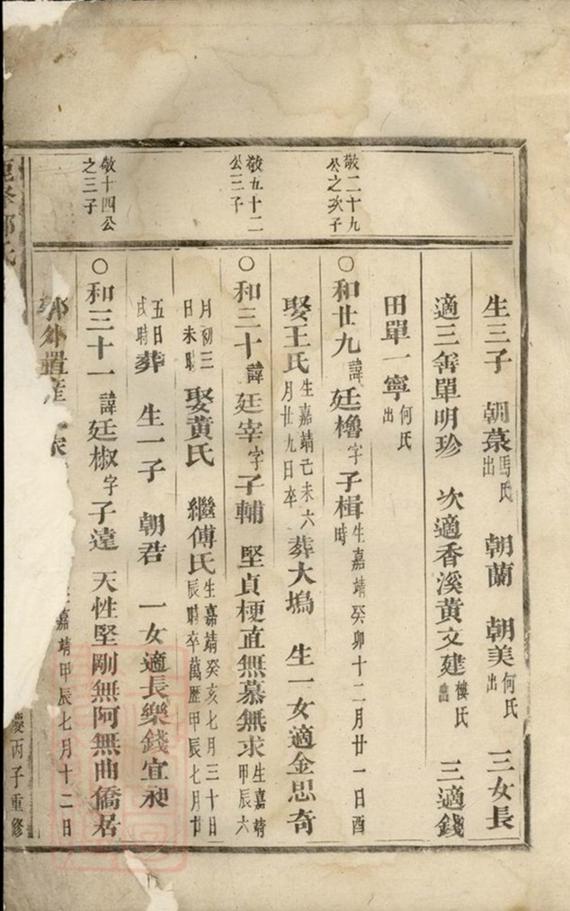 生三子 朝菉馬氏出 朝蘭 朝美何氏出 三女長
適三舍單明珍 次適香溪黃文建樓氏出 三適錢
田單一寧何氏出
敬二十九公之次子
○和廿九諱廷櫓字子楫生嘉靖癸卯十二月廿一日酉時
娶王氏生嘉靖己未六月廿九日卒葬大塢 生一女適金思奇
敬五十二公三子
○和三十諱廷宰字子輔 堅貞梗直無慕無求生嘉靖甲辰六
月初三日未時娶黃氏 繼傅氏生嘉靖癸亥七月三十日辰時卒萬歷甲辰七月廿
五日戌時葬 生一子 朝君 一女適長樂錢宜昶
敬十四公之三子
○和三十一諱廷椒字子遠 天性堅剛無阿無曲僑居
郭外置産 嘉靖甲辰七月十二日
慶丙子重修